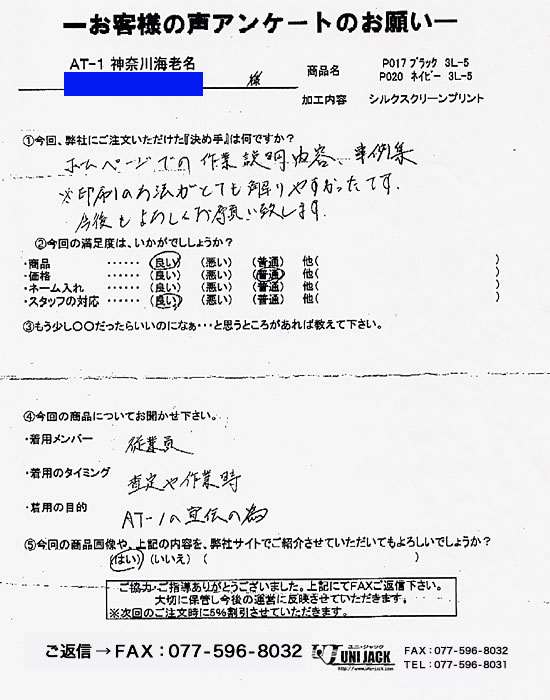 ―お客様の声アンケートのお願い―
AT-1 神奈川海老名
様
商品名 P017 ブラック 3L-5
P020 ネイビー 3L-5
加工内容 シルクスクリーンプリント
①今回、弊社にご注文いただけた『決め手』は何ですか?
ホームページでの作業説明内容、事例集
※印刷の方法がとても解りやすかったです.
今後もよろしくお願い致します.
②今回の満足度は、いかがでしょうか?
・商品 ・・・・・・ (良い) (悪い) (普通) 他( )
・価格 ・・・・・・ (良い) (悪い) (普通) 他( )
・ネーム入れ ・・・・・・ (良い) (悪い) (普通) 他( )
・スタッフの対応 ・・・・・・ (良い) (悪い) (普通) 他( )
③もう少し〇〇だったらいいのになぁ・・・と思うところがあれば教えて下さい。
④今回の商品についてお聞かせ下さい。
・着用メンバー 従業員
・着用のタイミング 査定や作業時
・着用の目的 AT-1の宣伝の為
⑤今回の商品画像や、上記の内容を、弊社サイトでご紹介させていただいてもよろしいでしょうか?
(はい) (いいえ) ( )
ご協力・ご指導ありがとうございました。上記にてFAXご返信下さい。
大切に保管し今後の運営に反映させていただきます。
※次回のご注文時に5%割引させていただきます。
ご返信→FAX:077-596-8032
ユニ・ジャック
UNI JACK
http://www.uni-jack.com
FAX:077-596-8032
TEL:077-596-8031